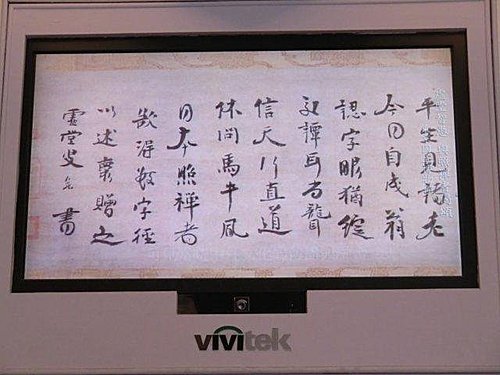 平生見諸老
今日自成翁
認字眼猶綻
交譚耳尚聾
信天行直道
休問馬牛風
日本照禅者
欲得数字徑
以述懐贈之
虛堂叟書
vivitek